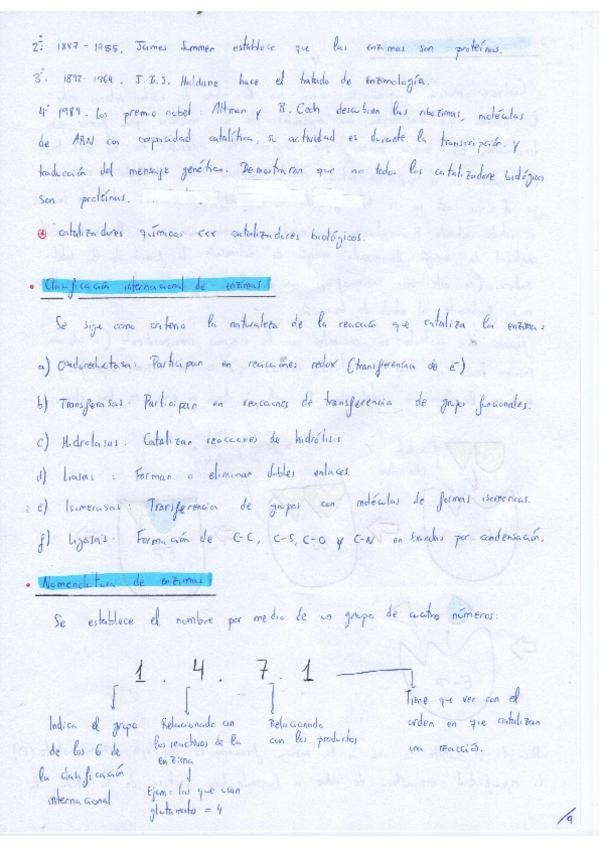 2º: 1887-1955. James Sumner establece que las enzimas son proteínas.
3º 1892-1964. J.B.S. Haldane hace el tratado de enzimología.
4º 1989. Los premio nobel: Altman y B. Cech descubren las ribozimas, moléculas
de ARN con capacidad catalítica, su actividad es durante la transcripción y
traducción del mensaje genético. Demostraron que no todos los catalizadores biológicos
son proteínas.
catalizadores químicos catalizadores biológicos.
• Clasificación internacional de enzimas.
Se sigue como criterio la naturaleza de la reacción que cataliza la enzima:
a) Oxidoreductasa: Participan en reacciones redox (transferencia de e⁻)
b) Transferasas: Participan en reacciones de transferencia de grupos funcionales.
c) Hidrolasas: Catalizan reacciones de hidrólisis
d) Liasas: Forman o eliminan dobles enlaces
e) Isomerasas: Transferencia de grupos con moléculas de formas isoméricas.
f) Ligasas: Formación de C-C, C-S, C-O y C-N en bandas por condensación.
• Nomenclatura de enzimas
Se establece el nombre por medio de un grupo de cuatro números:
1 . 4 . 7 . 1
Indica el grupo
de los 6 de
la clasificación
internacional
Relacionado con
los reactivos de la
enzima
Ejem: los que usan
glutamato = 4
Relacionado
con los productos
Tiene que ver con el
orden en que catalizan
una reacción.
/9